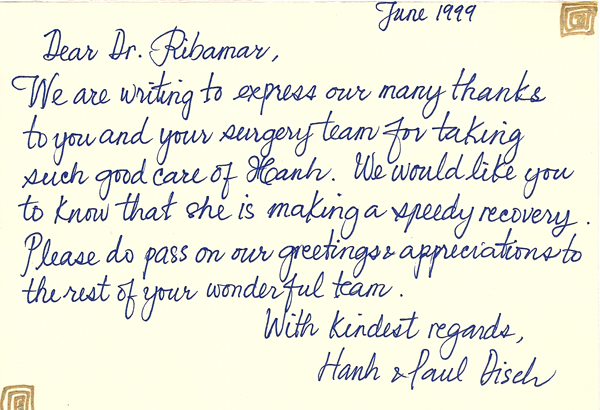 June 1999
Dear Dr. Ribamar,
We are writing to express our many thanks
to you and your surgery team for taking
such good care of Hanh. We would like you
to know that she is making a speedy recovery.
Please do pass on our greetings & appreciations to
the rest of your wonderful team.
With kindest regards,
Hanh & Paul Disch